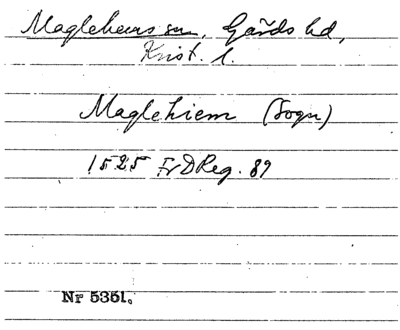 Maglehems sn, Gärds hd,
Krist. l.
Maglehiem (Sogn)
1525 FrDReg. 89
Nr 5351.